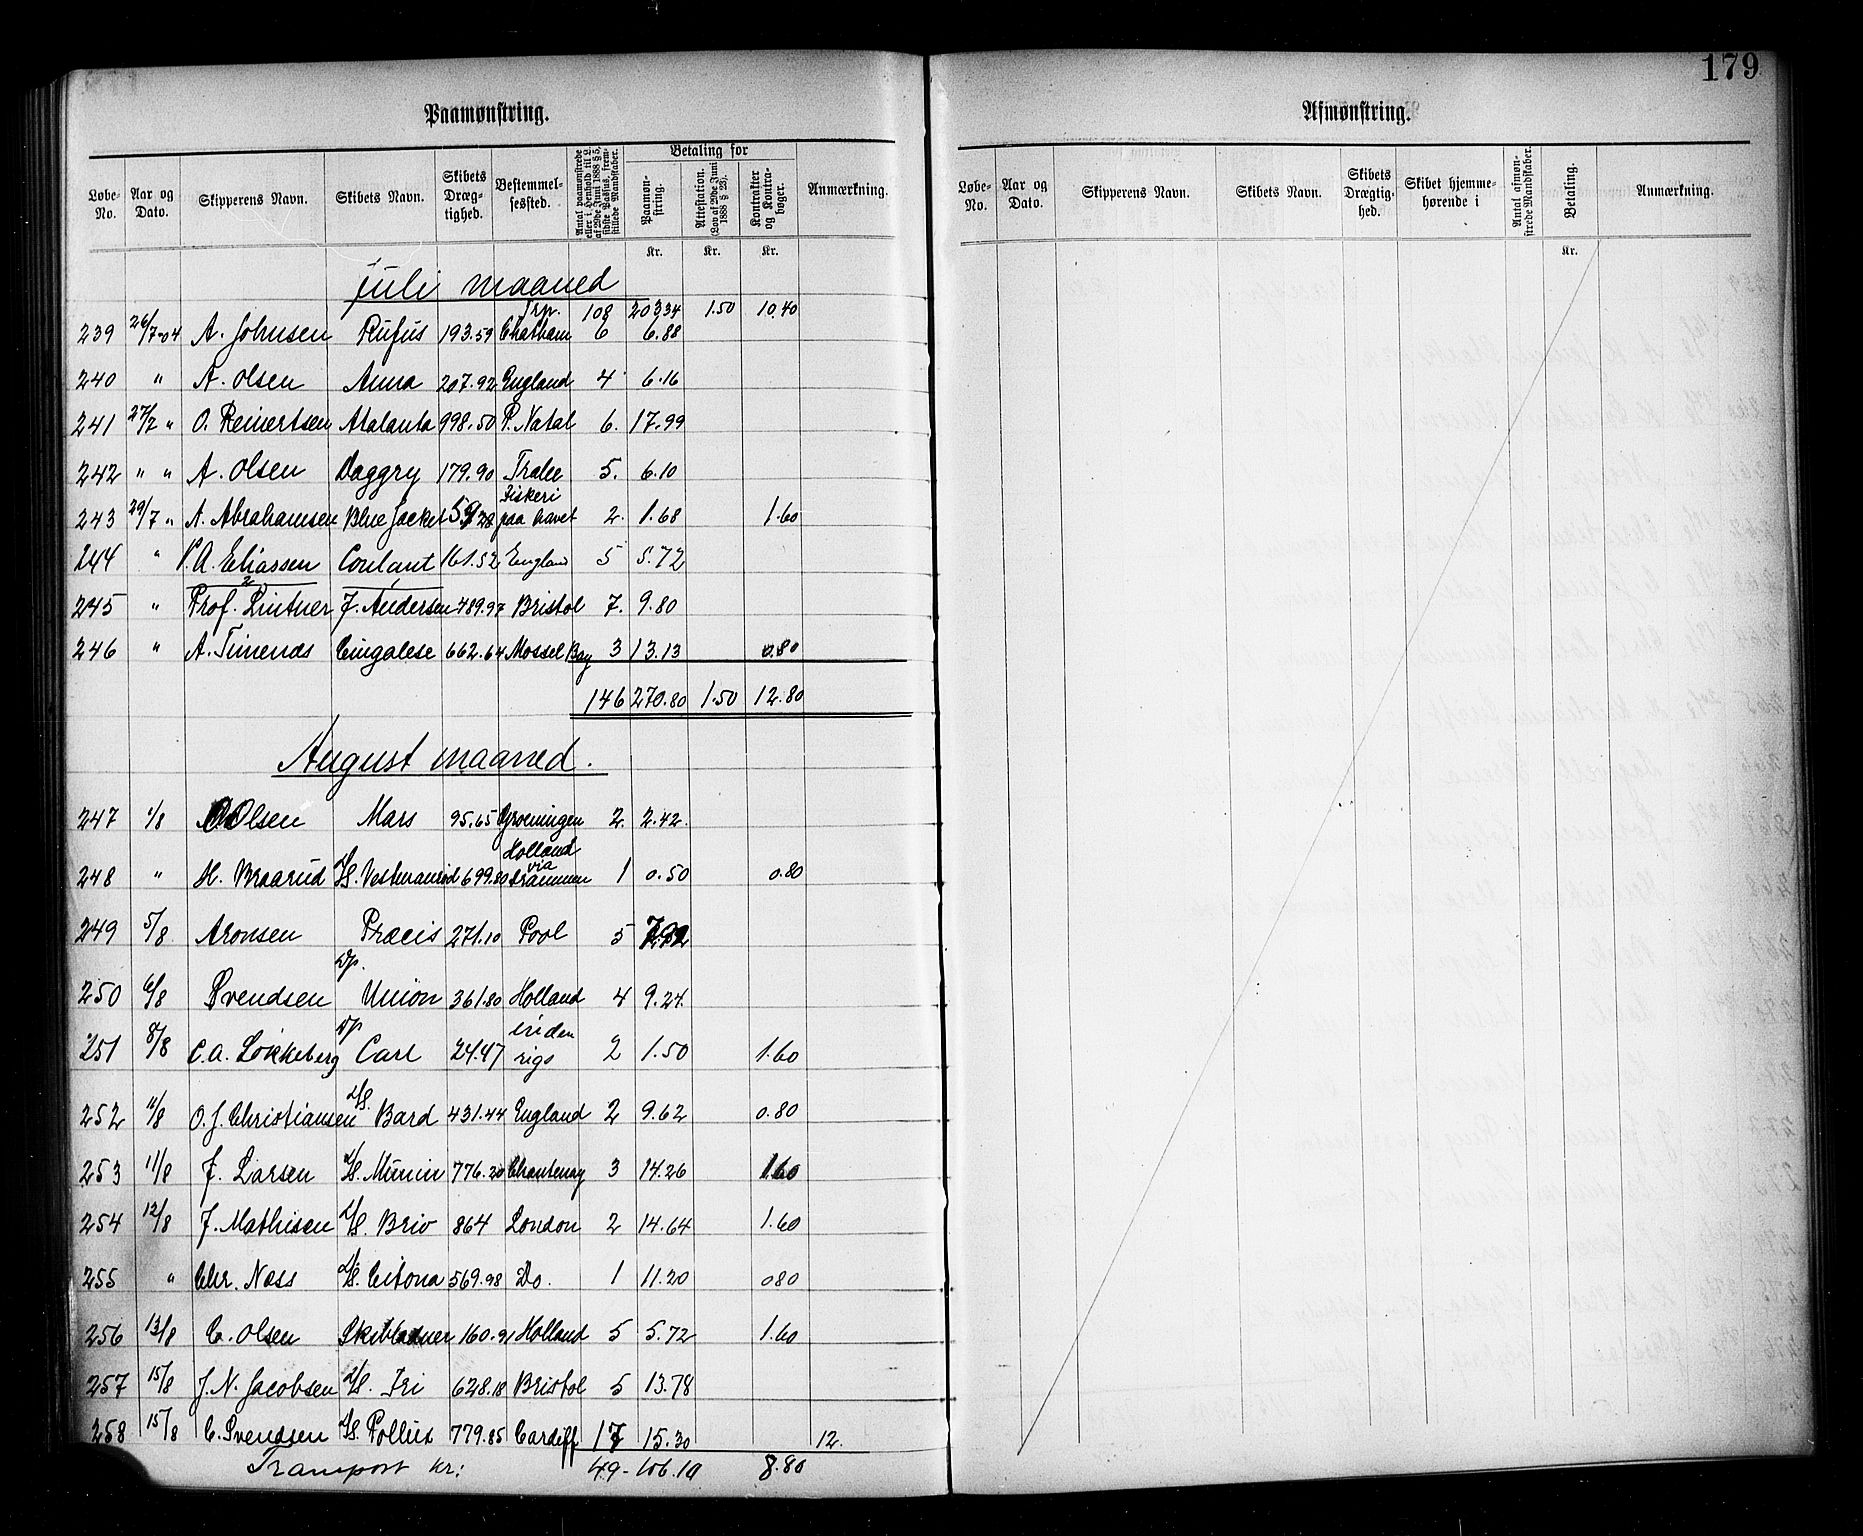 179
Paamønstring.
Løbe-No. Aar og Dato. Skipperens Navn. Skibets Navn. Skibets Dræg-tighed. Bestemmel-sessted. Antal paamønstrede eller i Henhold til L. af 29de Juni 1888 § 5, sidste Passus, frem-stillede Mandskaber. Betaling for Paamøn-string. Attestation. (Lov af 29de Juni 1888 § 23). Kontrakter og Kontra-bøger. Anmærkning.
Kr. Kr. Kr.
juli maaned
Trp. 108 203.34 1.50 10.40
239 26/7-04 A. Johnsen Rufus 193.59 Chatham 6 6.88
240 " A. Olsen Anna 207.92 England 4 6.16
241 27/7 " O. Reinertsen Atalanta 998.50 P. Natal 6. 17.99
242 " " A. Olsen Daggry 179.90 Tralee 5. 6.10
Fiskeri
243 29/7 " A. Abrahamsen Blue Jacket 59.28 paa havet 2. 1.68 1.60
244 " P.A. Eliassen Coulant 161.52 England 5 5.72
245 " Prof. Lintner J. Andersen 489.97 Bristol 7. 9.80
246 " A. Cingalese 662.64 Mossel Bay 3 13.13 0.80
146 270.80 1.50 12.80
August maaned.
247 1/8 Olsen Mars 95.65 Groeningen 2. 2.42.
Holland
via
248 " H. Braarud D/S. 699.80 Drammen 1 0.50 0.80
249 5/8 Aronsen Præcis 271.10 Pool 5
Dp.
250 6/8 Svendsen Union 361.80 Holland 4 9.24
Dp inden
251 8/8 C.A. Løkkeberg Carl 24.47 rigs 2 1.50 1.60
252 11/8 O.J. Christiansen D/S. Bard 431.44 England 2 9.62 0.80
253 11/8 J. Larsen D/S. Munin 776.20 Chantenay 3 14.26 1.60
254 12/8 J. Mathisen D/S. Brio 864 London 2 14.64 1.60
255 " Chr. Næss D/S. Citona 569.98 Do. 1 11.20 080
256 13/8 C. Olsen Skibladner 160.91 Holland 5 5.72 1.60
257 15/8 J.N. Jacobsen D/S. Fri 628.18 Bristol 5 13.78
258 15/8 C. Svendsen D/S. Pollux 779.85 Cardiff 17 15.30 12.
Transport kr: 49- 106.10 8.80
Afmønstring.
Løbe-No. Aar og Dato. Skipperens Navn. Skibets Navn. Skibets Drægtig-hed. Skibet hjemme-hørende i Antal afmøn-strede Mandskaber. Betaling. Anmærkning.
Kr.